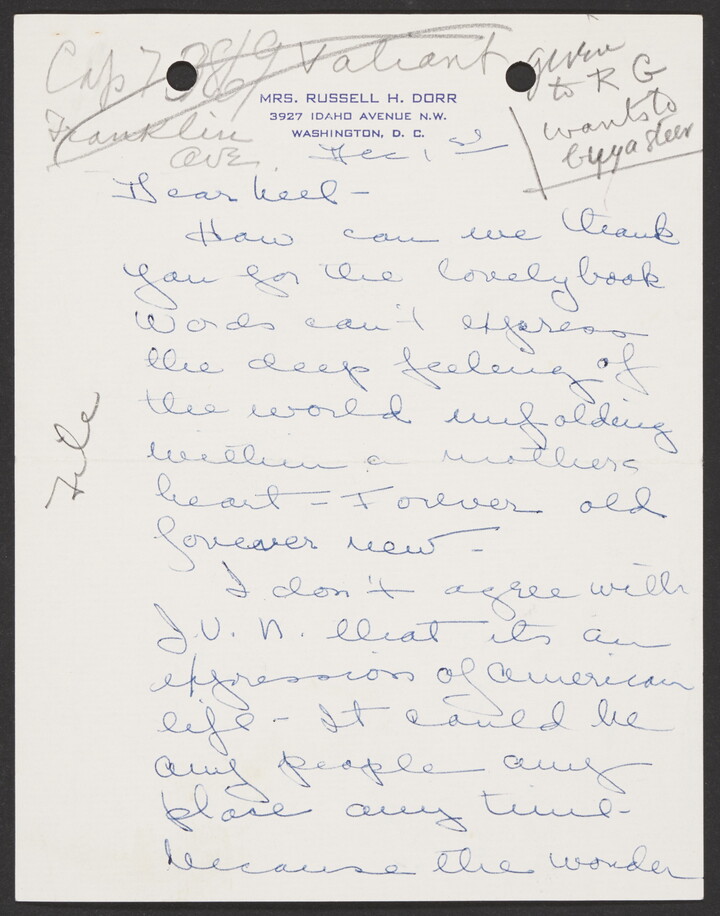 Cap 7 3869 Valiant given
to R G
wants to
buy a steer
Franklin
Ave.
MRS. RUSSELL H. DORR
3927 IDAHO AVENUE N.W.
WASHINGTON, D. C.
Dec, 1st
Dear Neel -
How can we thank
you for the lovely book
Words can't express
the deep feeling of
the world unfolding
within a mothers
heart - Forever old
forever new -
I don't agree with
J.V.N. that its an
expression of american
life - It could be
any people any
place any time -
because the wonder
File